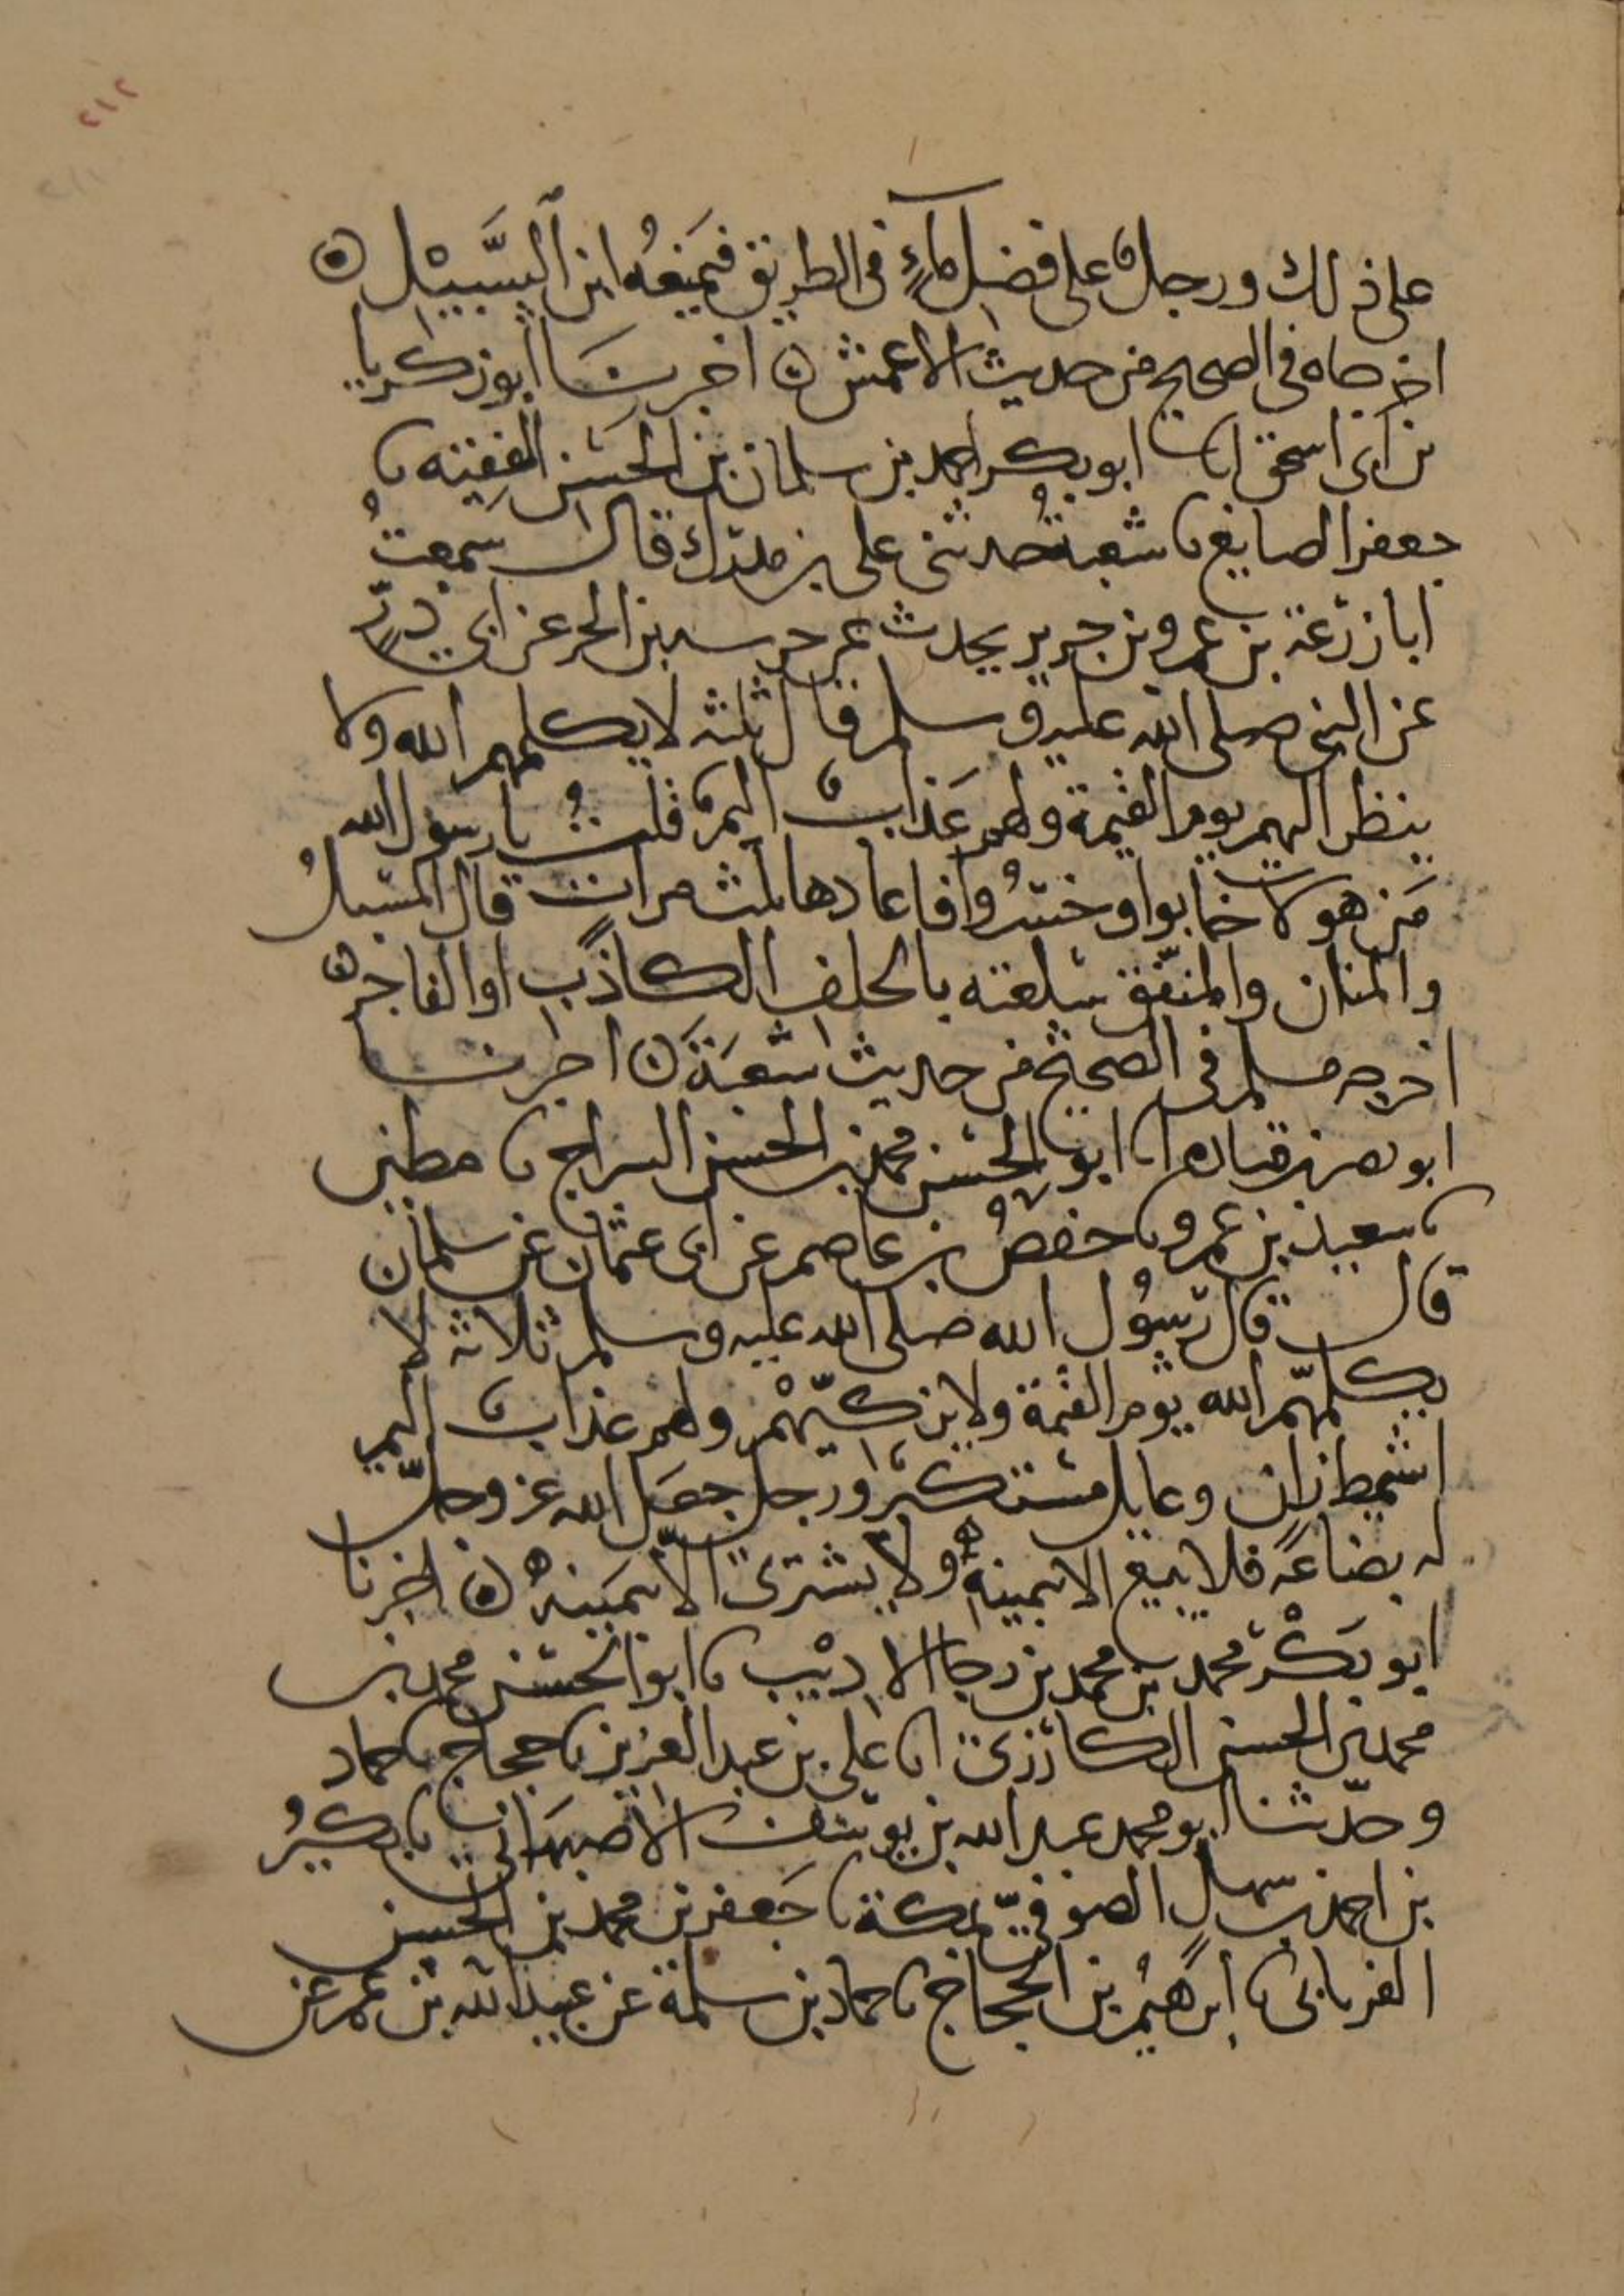 ٢١٢
على ذلك ورجل على فضل ماءٍ في الطريق فيمنعُه ابن السَّبيْل ه
اخرجاه في الصحيح من حديث الاعمش ه اخبرنَا ابو زكريا
بن ابى اسحق انا ابو بكر احمد بن سلمان بن الحسَن الفقِيه نا
جعفر الصايغ نا شعبةُ حدثنى على بن مدرك قال سَمِعتُ
ابا زرْعة بن عمرو بن جرير يحدث عن خرسه بن الحر عن ابي ذرٍّ
عن النبي صلى الله عليه وسلم قال ثلثه لا يكلمهم الله ولا
ينظر اليهم يوم القيمة ولهم عَذابٌ اليمٌ قلتُ يا رسول الله
مَن هولا خابوا وخسرُوا فاعادها ثلث مرات قال المسبلُ
والمنان والمنفّق سلعته بالحلف الكاذب او الفاجر ه
اخرجه مسلم في الصحيح من حديث شعبَةَ ه اخبرنا
ابو نصر بن قتاده انا ابو الحسن محمد بن الحسن السراج نا مطين
نا سعيد بن عمرو نا حفصُ بن عاصم عن ابى عثمان عن سلمان
قال قال رسُول الله صلى الله عليه وسلم ثلاثه لا
يكلمهّم الله يوْم القيمة ولا يزكيّهمْ ولهم عذابٌ اليم
اشيمط زانٍ وعايل مستكبرٌ ورجل جعَل الله عز وجلّ
له بضاعَه فلا يبيع الا بيمينهِ ولا يشترى الا بيمَينه ه اخبرنا
ابو بَكْر محمد بن محمد بن رجا الاديْب نا ابو الحسن محمد بن
محمد بن الحسن الكارزى انا على بن عبد العزيز نا حجاج نا حماد
وحدّثنا ابو محمد عبد الله بن يوسف الاصبهَاني نا بكيرُ
بن احمد بن سهل الصوفيّ بمكة نا جَعفر بن محمد بن الحسن
الفريابى نا ابرهيمُ بن الحجاج نا حماد بن سلمة عن عبيد الله بن عمر عن